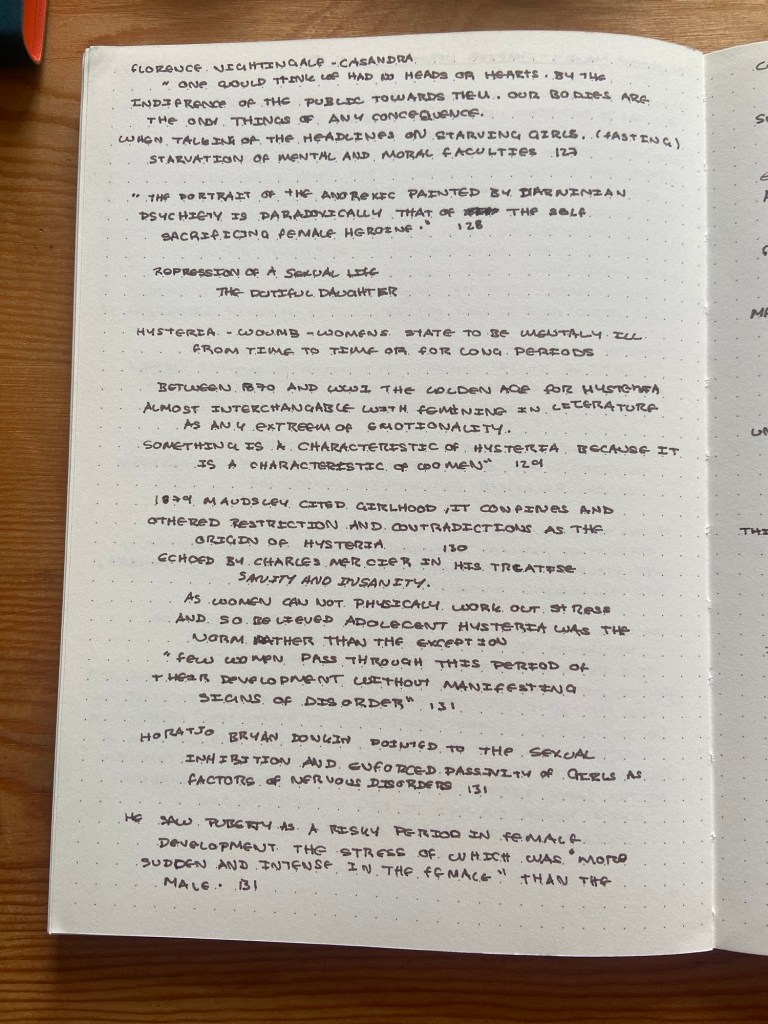 FLORENCE NIGHTINGALE - CASANDRA
" ONE WOULD THINK WE HAD NO HEADS OR HEARTS. BY THE
INDIFRENCE OF THE PUBLIC TOWARDS THEM. OUR BODIES ARE
THE ONLY THINGS OF ANY CONCEQUENCE.
WHEN TALKING OF THE HEADLINES ON STARVING GIRLS. (FASTING)
STARVATION OF MENTAL AND MORAL FACULTIES 127
" THE PORTRAIT OF THE ANOREXIC PAINTED BY DARWINIAN
PSYCHIETY IS PARADOXICALLY THAT OF THE SELF
SACRIFICING FEMALE HEROINE." 128
REPRESSION OF A SEXUAL LIFE
THE DUTIFUL DAUGHTER
HYSTERIA - WOUMB - WOMENS STATE TO BE MENTALY ILL
FROM TIME TO TIME OR FOR LONG PERIODS
BETWEEN 1870 AND WW1 THE GOLDEN AGE FOR HYSTERIA
ALMOST INTERCHANGABLE WITH FEMININE IN LITERATURE
AS ANY EXTREEM OF EMOTIONALITY.
SOMETHING IS A CHARACTERISTIC OF HYSTERIA BECAUSE IT
IS A CHARACTERISTIC OF WOMEN" 129
1879 MAUDSLEY CITED GIRLHOOD, IT CONFINES AND
OTHERED RESTRICTION AND CONTRADICTIONS AS THE
ORIGIN OF HYSTERIA 130
ECHOED BY CHARLES MERCIER IN HIS TREATESE
SANITY AND INSANITY.
AS WOMEN CAN NOT PHYSICALLY WORK OUT STRESS
AND SO BELIEVED ADOLECENT HYSTERIA WAS THE
NORM RATHER THAN THE EXCEPTION
" FEW WOMEN PASS THROUGH THIS PERIOD OF
THEIR DEVELOPMENT WITHOUT MANIFESTING
SIGNS OF DISORDER" 131
HORATIO BRYAN DONKIN POINTED TO THE SEXUAL
INHIBITION AND ENFORCED PASSIVITY OF GIRLS AS
FACTORS OF NERVOUS DISORDERS 131
HE SAW PUBERTY AS A RISKY PERIOD IN FEMALE
DEVELOPMENT THE STRESS OF WHICH WAS "MORE
SUDDEN AND INTENSE IN THE FEMALE" THAN THE
MALE. 131